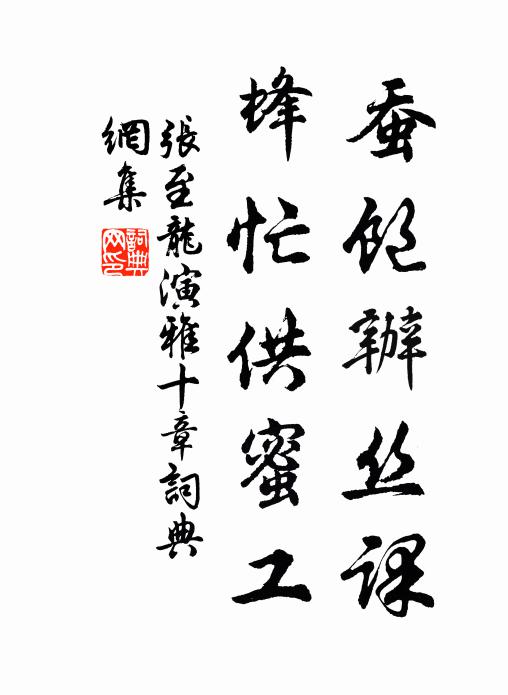 蚕饱辦丝课
蜂忙供蜜工
張至龍演雅十章詞典
網集
詞典網印